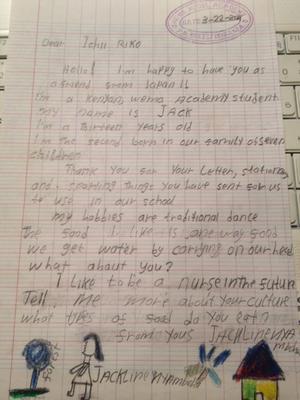 3-22-
Dear Ichii RIKO
Hello! I'm happy to have you as
a friend from Japan!!
I'm a Kenyan, wema Academy student
my name is JACK
I'm a thirteen years old
I'm the second born in our family of seven
children
Thank you for Your Letter, stationary
and sporting things you have sent for us
to use in our school
my hobbies are traditional dance
The food I like is
we get water by carrying on our head
what about you?
I Like to be a nurse in the future
Tell me more about your culture
what types of food do you eat?
from yous JACKLINE NYA
mbch
forest
JACKLINE NYAmbch